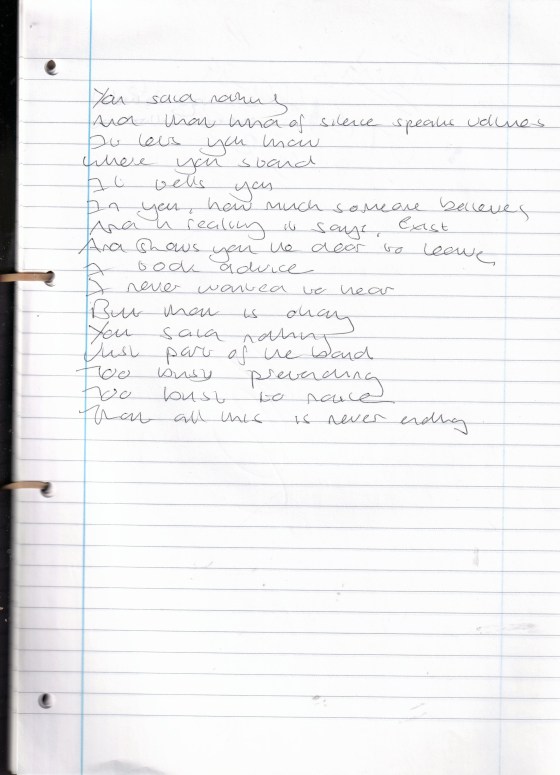 You said nothing
And that kind of silence speaks volumes
It lets you know
where you stand
It tells you
In you, how much someone believes
And in reality it says, Exist
And shows you the door to leave
I took advice
I never wanted to hear
But that is okay
You said nothing
Just part of the band
Too busy pretending
Too busy to notice
That all this is never ending